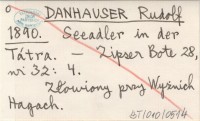 DANHAUSER Rudolf
1890. Seeadler in der
Tátra. — Zipser Bote 28,
nr 32: 4.
Złowiony przy Wyżnich
Hagach.
BT/010/0514